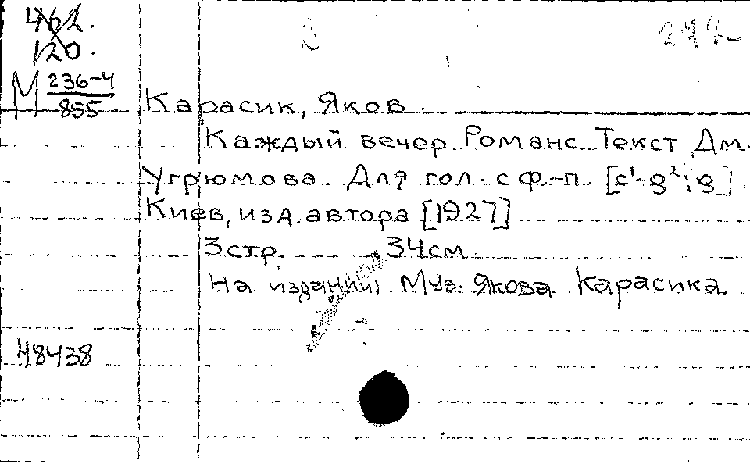 462.
120.
М 236-4
855
Карасик, Яков
Каждый вечер. Романс. Текст Дм.
Угрюмова. Для гол. с ф.-п. [c¹-g²; g]
Киев, изд. автора [1927]
3 стр. 34 см.
На издании: Муз. Якова Карасика.
48438